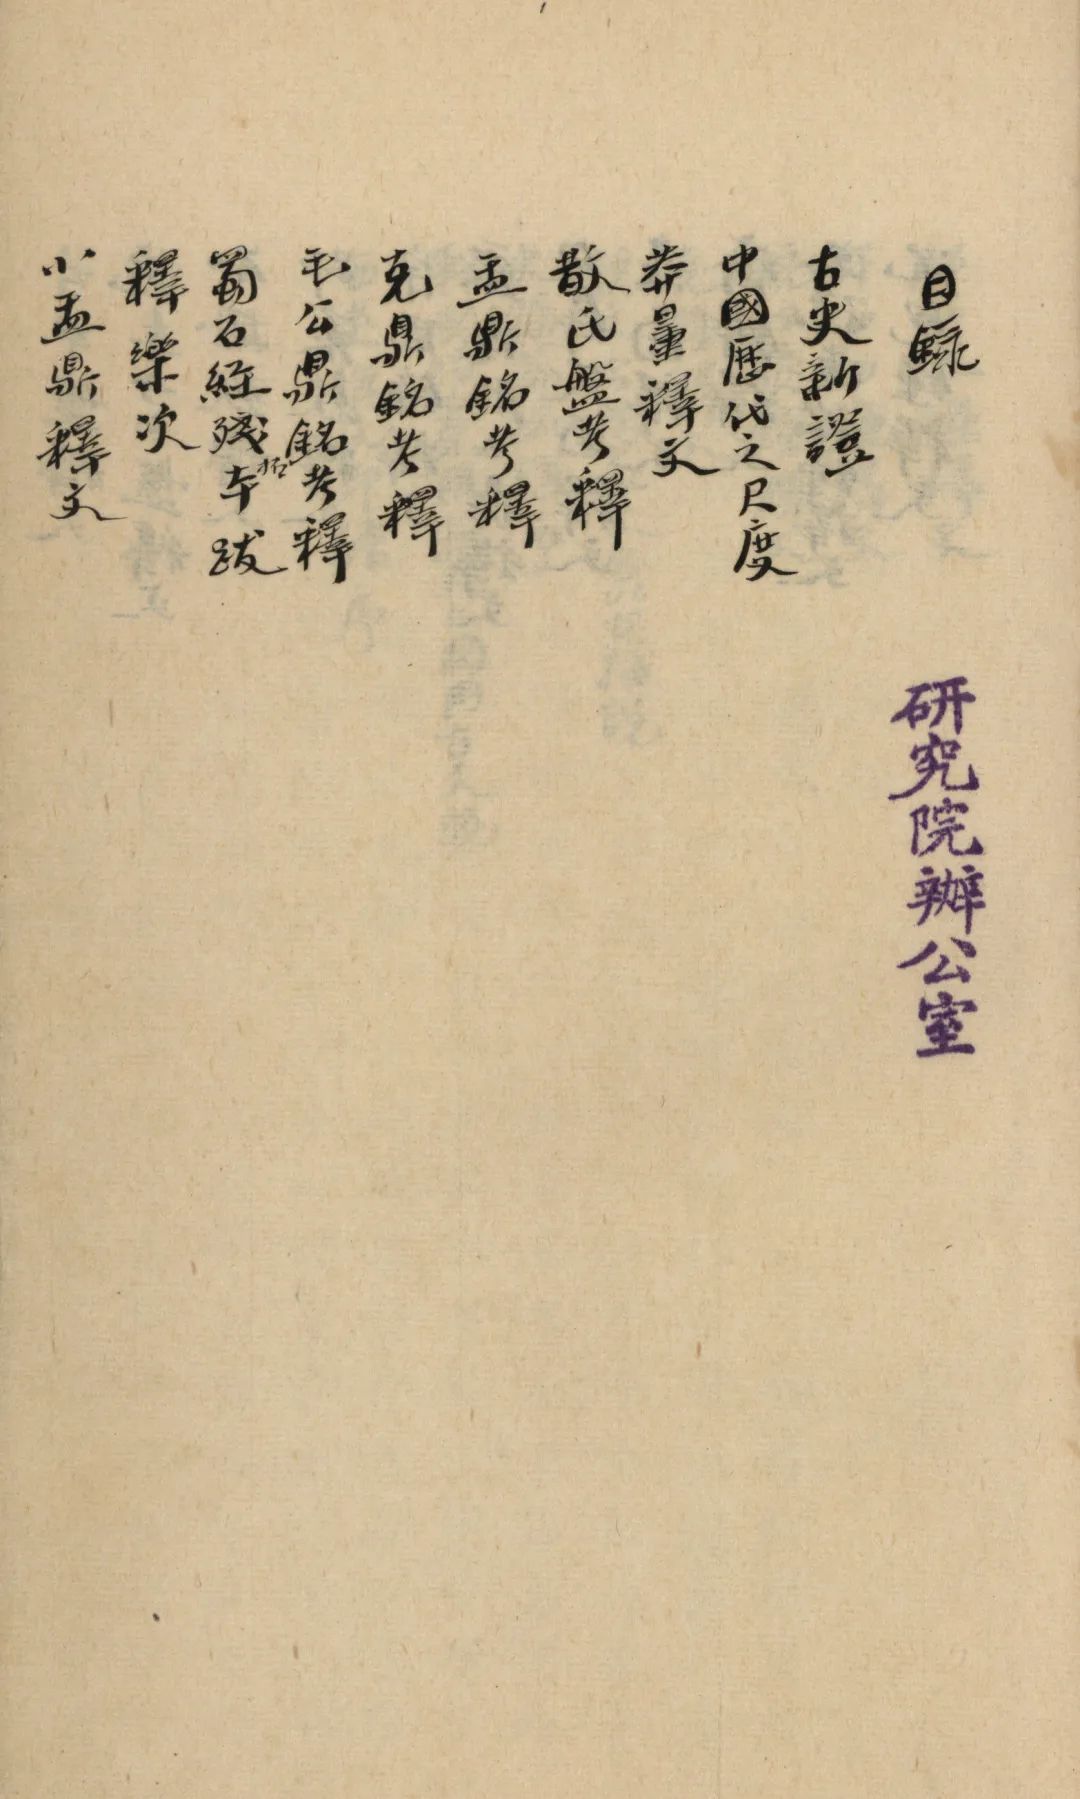 目録
研究院辦公室
古史新證
中國歷代之尺度
莽量釋文
散氏盤考釋
盂鼎銘考釋
克鼎銘考釋
毛公鼎銘考釋
蜀石經殘拓本跋
釋樂次
小盂鼎釋文